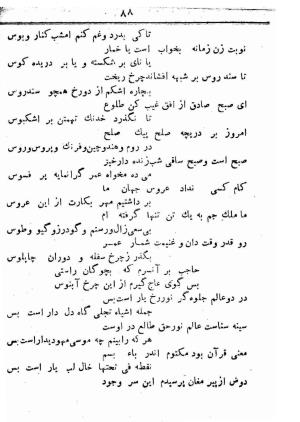 ۸۸
تاکی بدرد وغم کنم امشب کنار وبوس
نوبت زن زمانه بخواب است یا خمار
یا نای بر شکسته و یا بر دریده کوس
تا سند روس بر شبه افشاند چرخ ریخت
بیچاره اشکم از دورخ همچو سندروس
ای صبح صادق از افق غیب کن طلوع
تا نگذرد خدنگ تهمتن بر اشکبوس
امروز بر دریچه صلح پیک صلح
در روم وهند وچین وفرنک وپروس وروس
صبح است وصبح ساقی شب زنده دار خیز
می ده مخواه عمر گرانمایه بر فسوس
کام کسی نداد عروس جهان ما
بر داشتیم مهر بکارت از این عروس
ما ملک جم به یک تن تنها گرفته ام
بی سعی زال ورستم وگودرز وگیو وطوس
رو قدر وقت دان و غنیمت شمار عمر
بگذر ز چرخ سفله و دوران چاپلوس
حاجب بر آنسرم که بچوگان راستی
بس گوی عاج گیرم از این چرخ آبنوس
در دو عالم جلوه گر نور رخ یار است بس
جمله اشیاء تجلی گاه دل دار است بس
سینه سناست عالم نور حق طالع در اوست
هر که را بینم چه موسی مهودیدار است بس
معنی قرآن بود مکتوم اندر باء بسم
نقطه فی تحتها خال لب یار است بس
دوش از پیر مغان پرسیدم این سر وجود